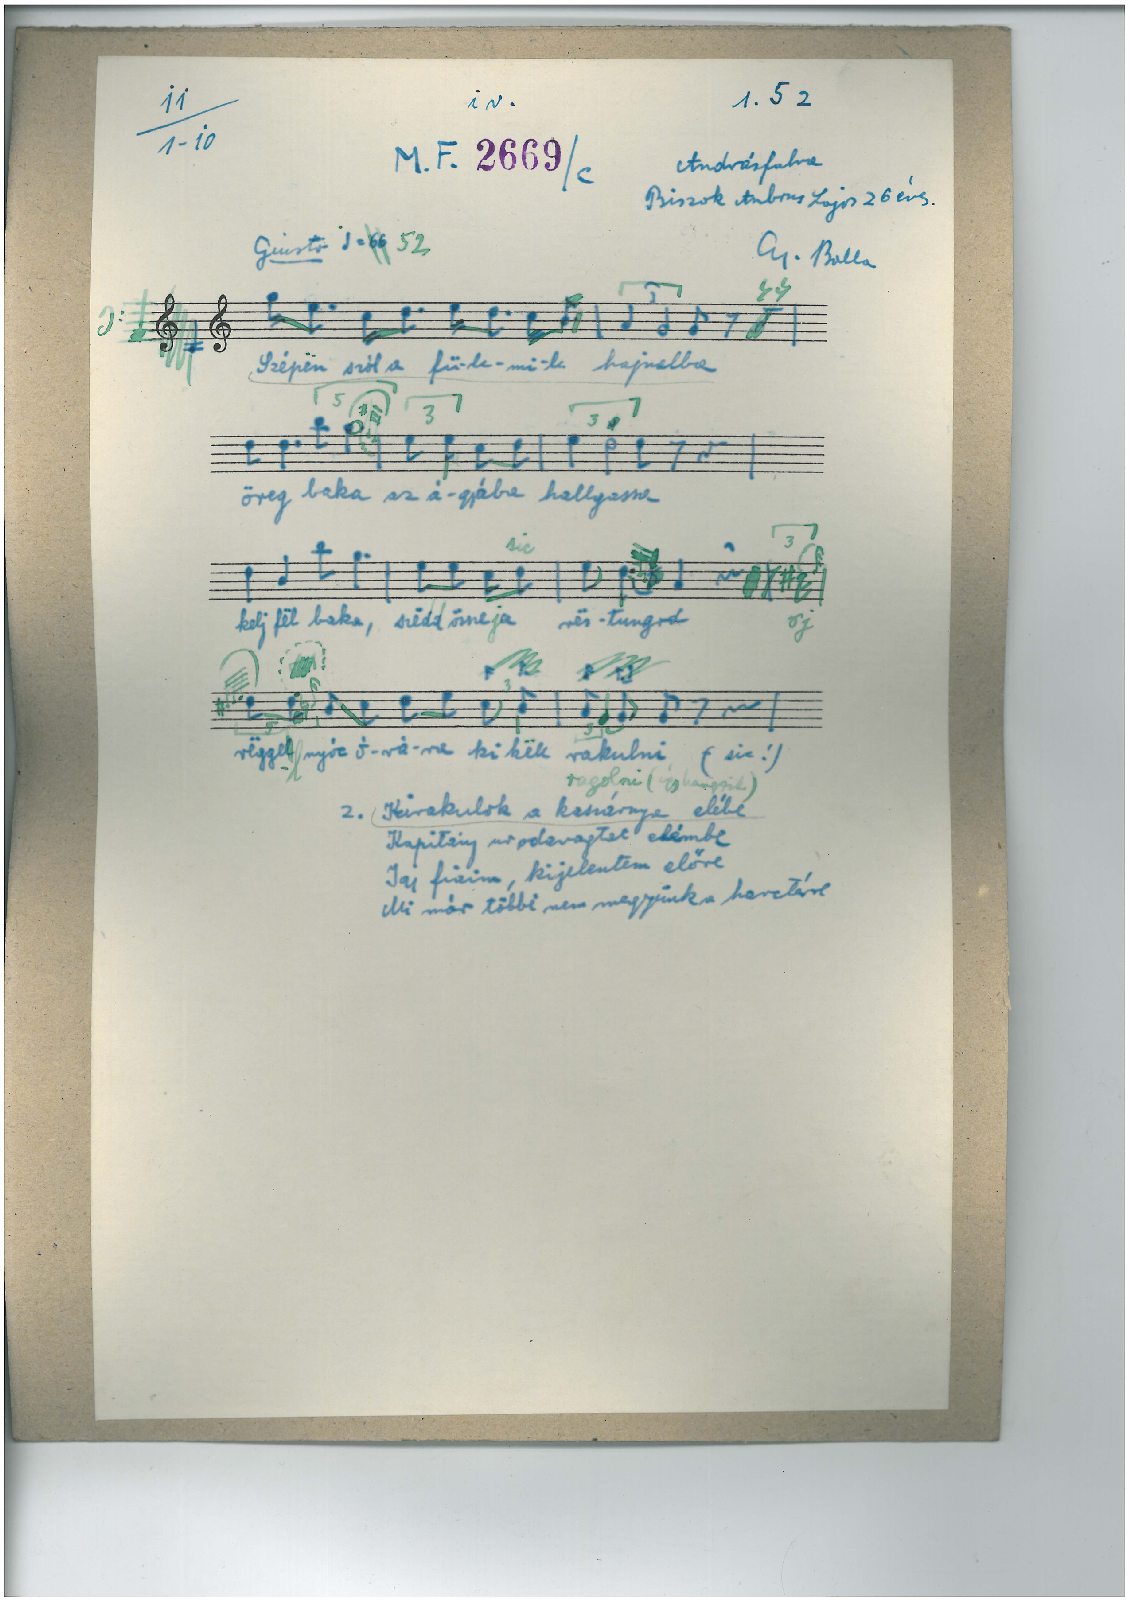 ii iv. 1. 52
1-10
M.F. 2669/c Andrásfalva
Biszok Ambrus Lajos 26 éves.
Giusto ♩=66 52 Gy. Balla
3
Szépën szól a fü-le-mi-le hajnalba
5 3 3
öreg baka az á-gjába hallgassa
sic 3
kelj fël baka, szëdd össze ja rës-tungod
oj
3
rëggel nyóc ó-rá-ra ki këll rakulni (sic!)
3
ragolni (így hangzik)
2. Kirakulok a kaszárnya elébe
Kapitány ur odavagtat elémbe
Jaj fiaim, kijelentem előre
Mi már többé nem megyünk a harctérre